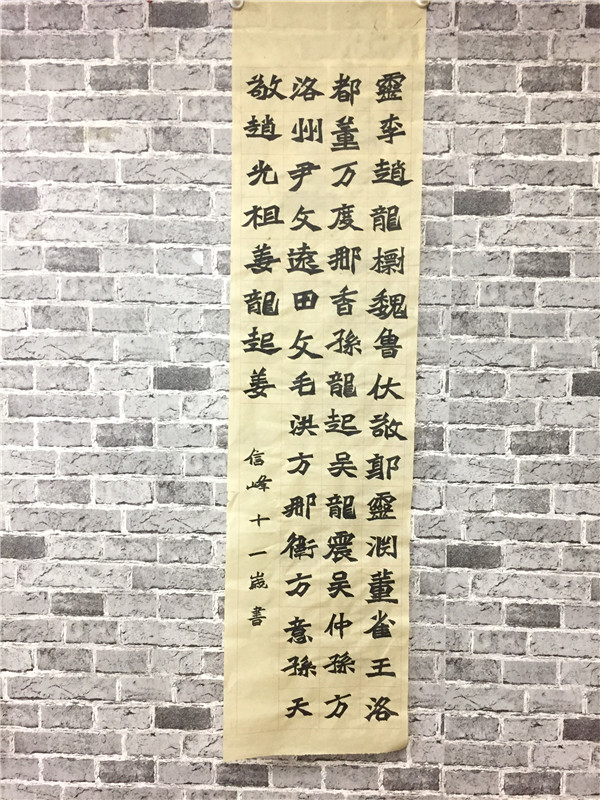 靈李趙龍櫥魏魯伏敬郭靈渊董雀王洛
都董万度那香孫龍起吴龍震吴仲孫方
洛州尹文遠田文毛洪方那衛方意孫天
敬趙光相姜龍起姜
信峰十一歲書